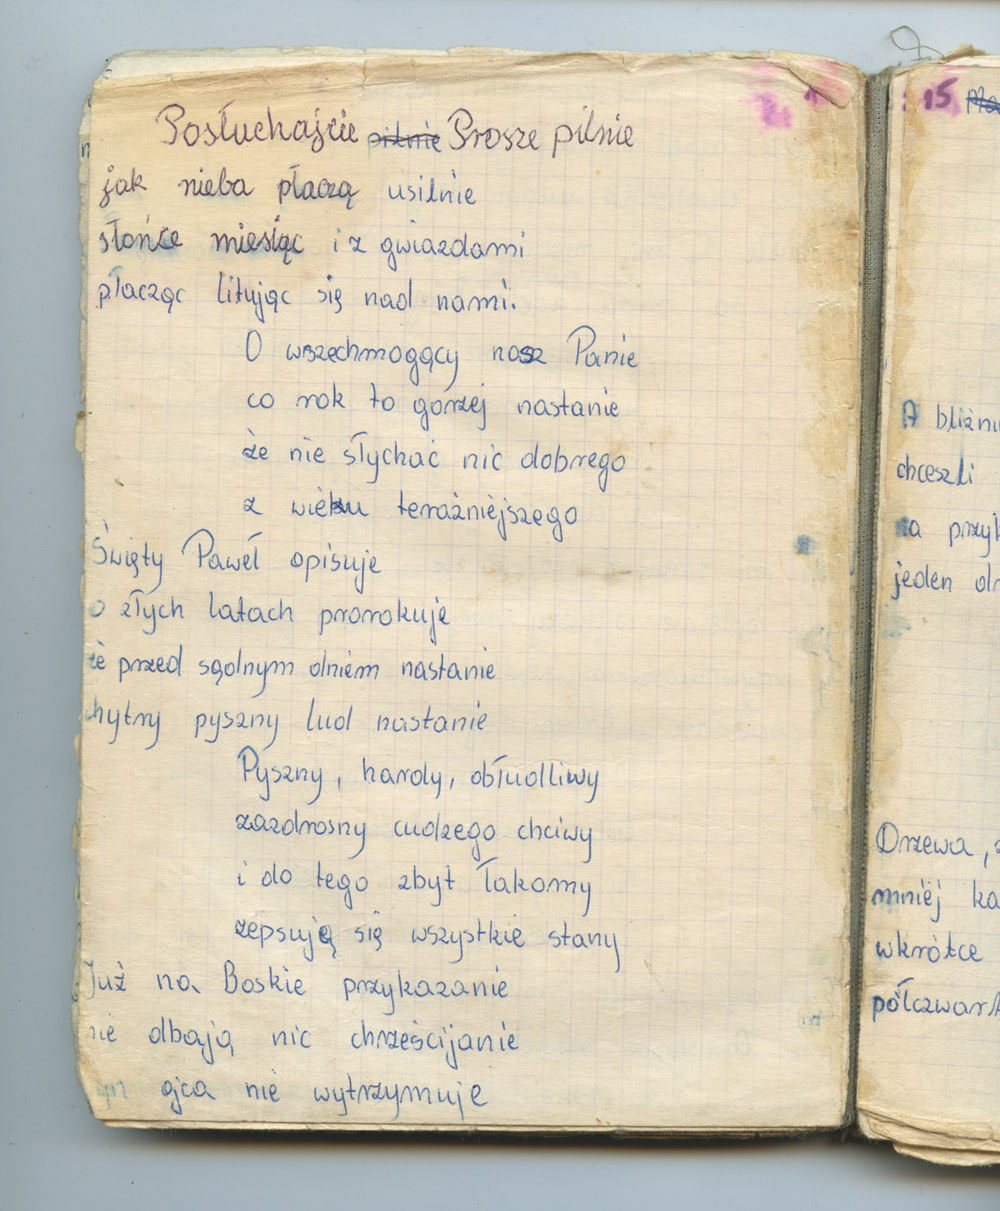 Posłuchajcie pilnie Prosze pilnie
jak nieba płaczą usilnie
słońce miesiąc i z gwiazdami
płacząc litując się nad nami.
O wszechmogący nasz Panie
co rok to gorzej nastanie
że nie słychać nic dobrego
z wieku teraźniejszego
Święty Paweł opisuje
o złych latach prorokuje
że przed sądnym dniem nastanie
chytry pyszny lud nastanie
Pyszny, hardy, obłudliwy
zazdrosny cudzego chciwy
i do tego zbyt łakomy
zepsują się wszystkie stany
Już na Boskie przykazanie
nie dbają nic chrześcijanie
syn ojca nie wytrzymuje
15
A bliźni
chceszli
na przyk
jeden dn
Drzewa,
mniej ka
wkrótce
półczwart